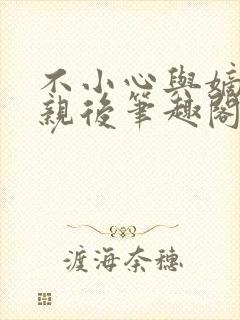 不小心與嫡
親後筆趣閣
渡海奈穗